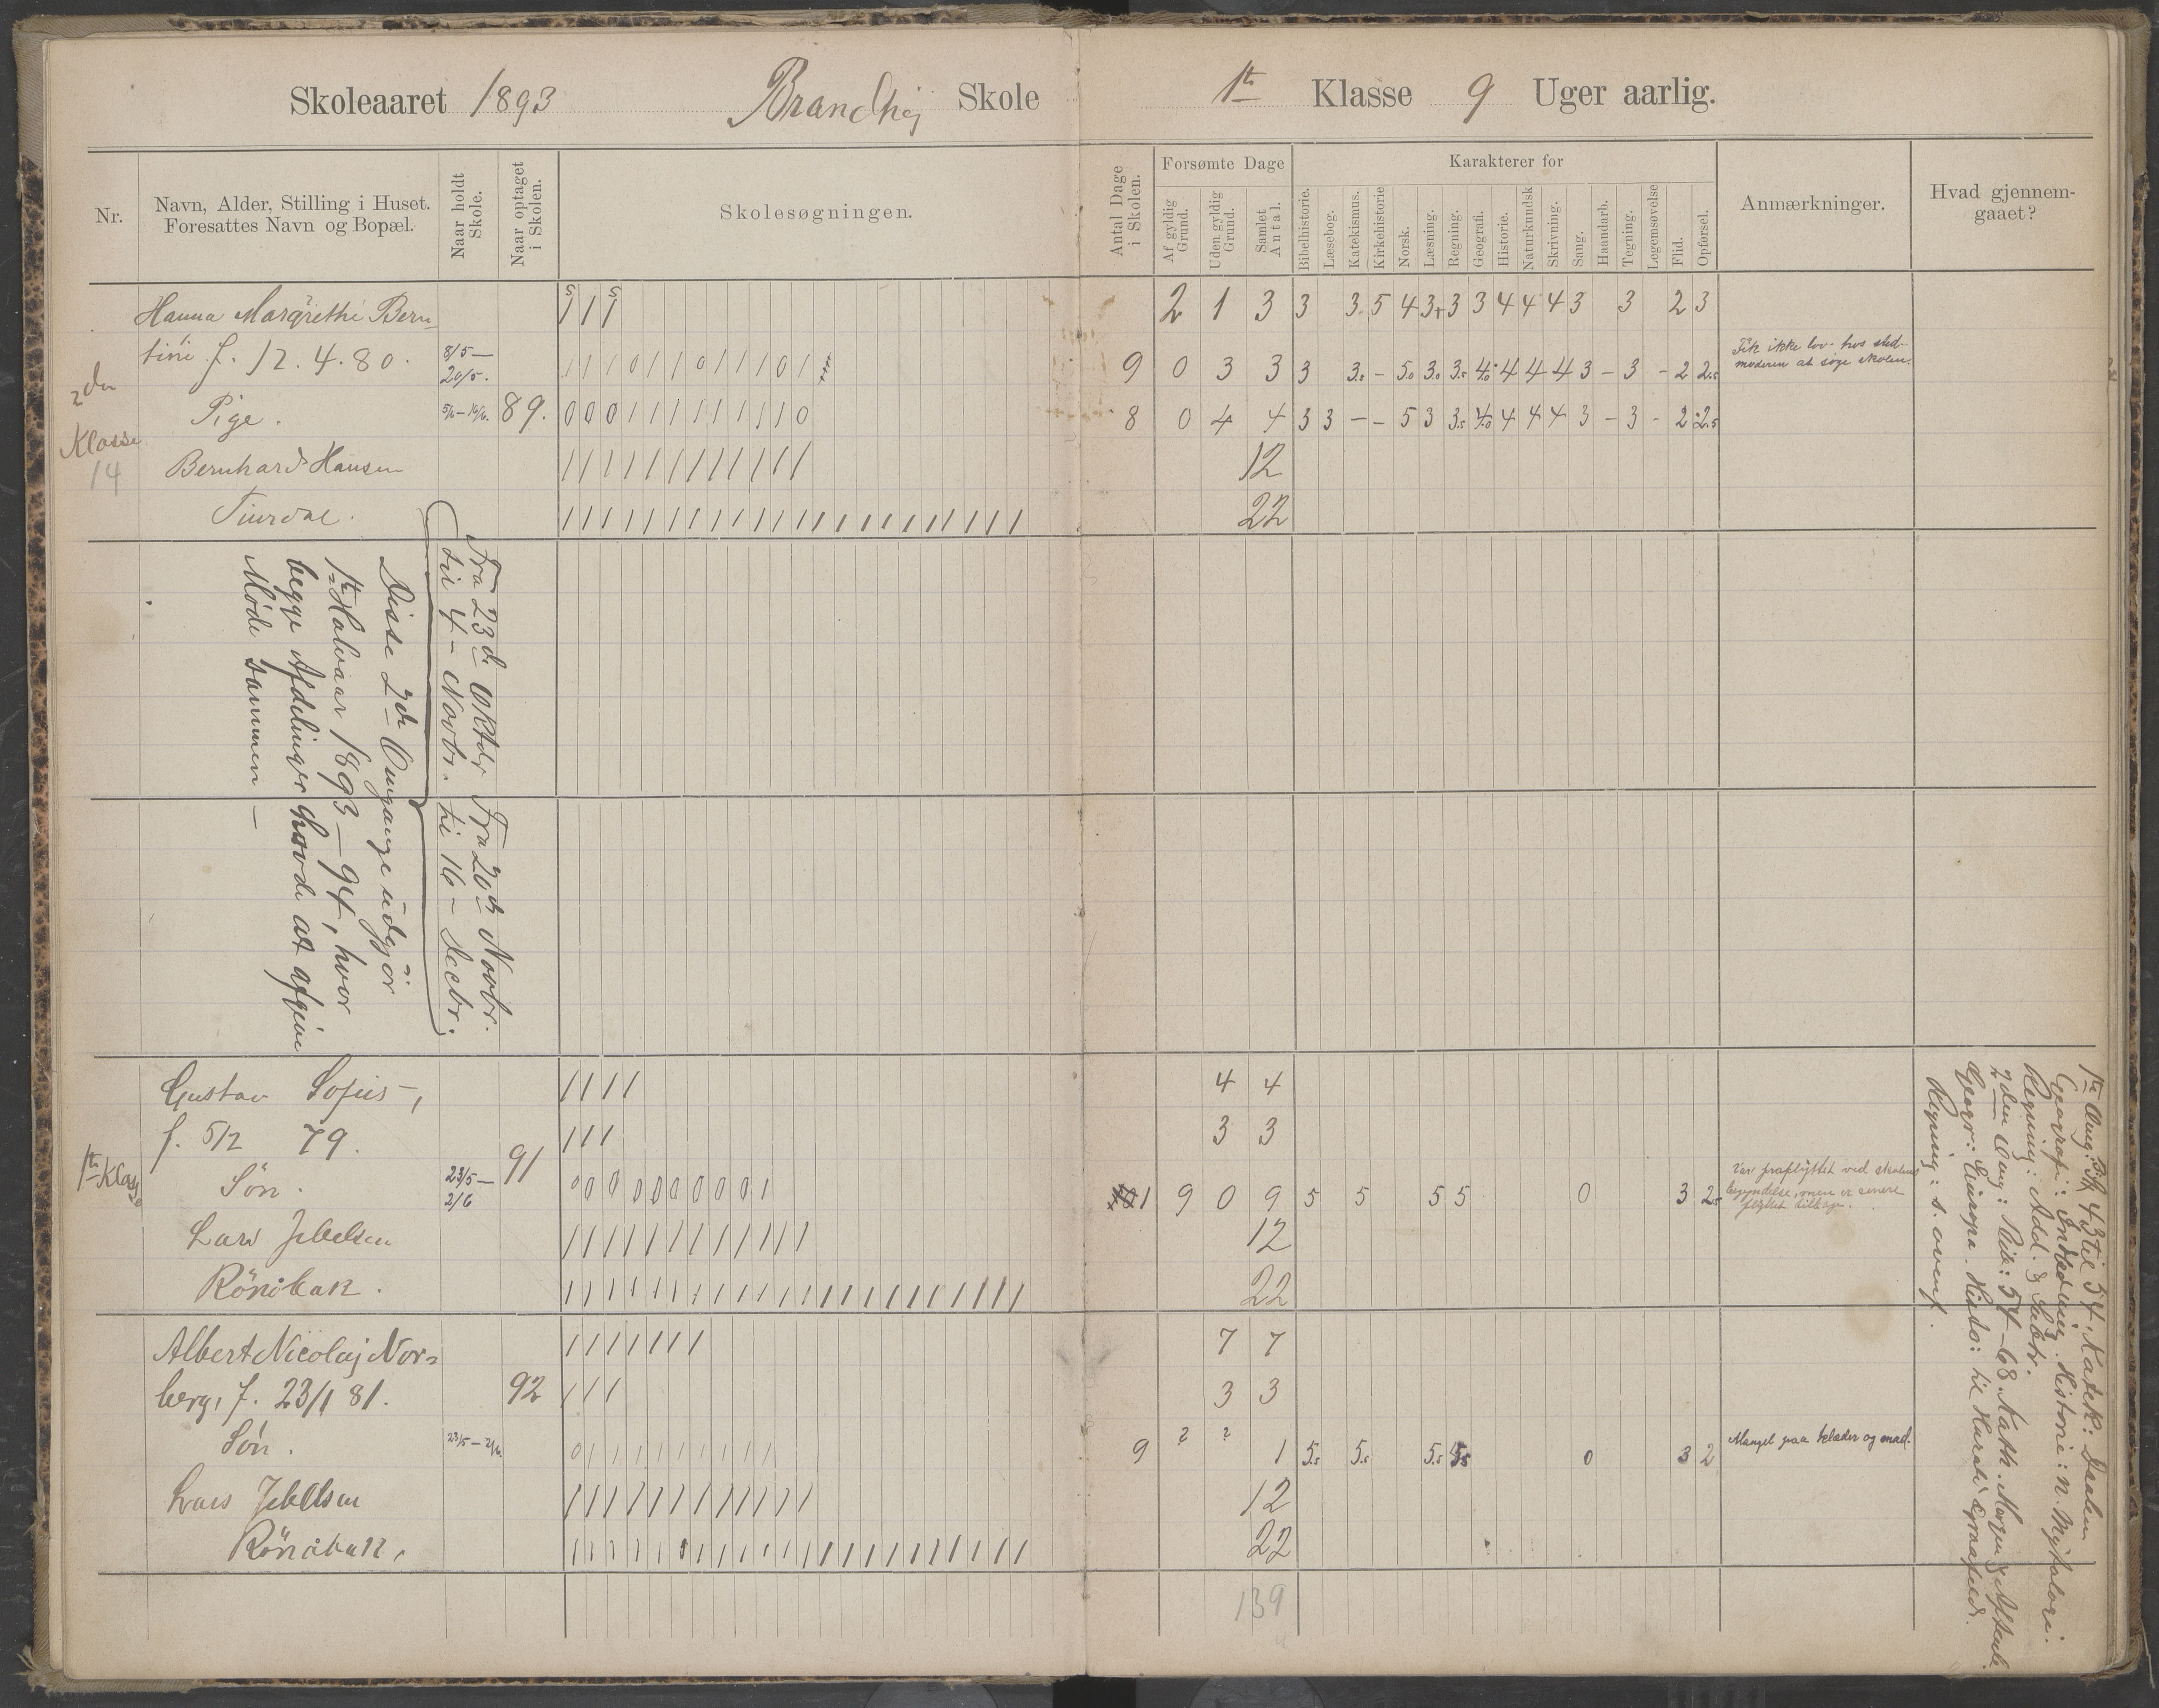 Skoleaaret 1893 Brandhøj Skole 1ste Klasse 9 Uger aarlig.
Nr.
Navn, Alder, Stilling i Huset.
Foresattes Navn og Bopæl.
Naar holdt Skole.
Naar optaget i Skolen.
Skolesøgningen.
Antal Dage i Skolen.
Forsømte Dage
Af gyldig Grund.
Uden gyldig Grund.
Samlet Antal.
Karakterer for
Bibelhistorie.
Læsebog.
Katekismus.
Kirkehistorie
Norsk.
Læsning.
Regning.
Geografi.
Historie.
Naturkundsk
Skrivning.
Sang.
Haandarb.
Tegning.
Legemsøvelse
Flid.
Opførsel.
Anmærkninger.
Hvad gjennem-
gaaet?
Hanna Margrethe Bern-
2 1 3 3 3. 5 4 3+ 3 3 4 4 4 3 3 2 3
tine f. 12.4.80. 8/5 — 20/5.
9 0 3 3 3 3.5 - 5.0 3.0 3.5 4.0 4 4 4 3 - 3 - 2 2.5
Fik ikke lov hos sted-
moderen at søge skolen.
2den Klasse
14
Pige. 5/6 – 16/6. 89.
8 0 4 4 3 3 - - 5 3 3.5 4.0 4 4 4 3 - 3 - 2 2.5
Bernhard Hansen
12
22
Fra 23de Oktbr
til 4 - Novbr.
Fra 20de Novbr.
til 16 - Decbr.
Disse 2de Omgange udgjör
1ste Halvaar 1893 — 94, hvor
begge Afdelinger havde at afgive
Møde sammen —
Gustav Sofus -,
4 4
f. 5/2 79. 91
3 3
1ste Klasse
Sön. 23/5 — 2/6
1 9 0 9 5 5 5 5 0 3 2.5
Var fraflyttet ved skolens
begyndelse, men er senere
flyttet tilbage.
Lars
12
22
Albert Nicolaj Nor=
7 7
berg, f. 23/1 81. 92
3 3
Sön. 23/5 – 2/6.
9 ? ? 1 5.5 5.5 5.5 5.5 0 3 2
Mangel paa klæder og mad.
Lars
12
22
139
1ste Omg: Bh. 43 til 54. Katek: Daaben
Geografi: Indledning. Historie: n. Mytologi.
Regning: Add. & Subtr.
2den Omg: Bib: 54 – 68. Kath. Morgen & Aftenb.
Geogr: Europa. Histo: til Harald Graafeld.
Regning: s. ovenf.